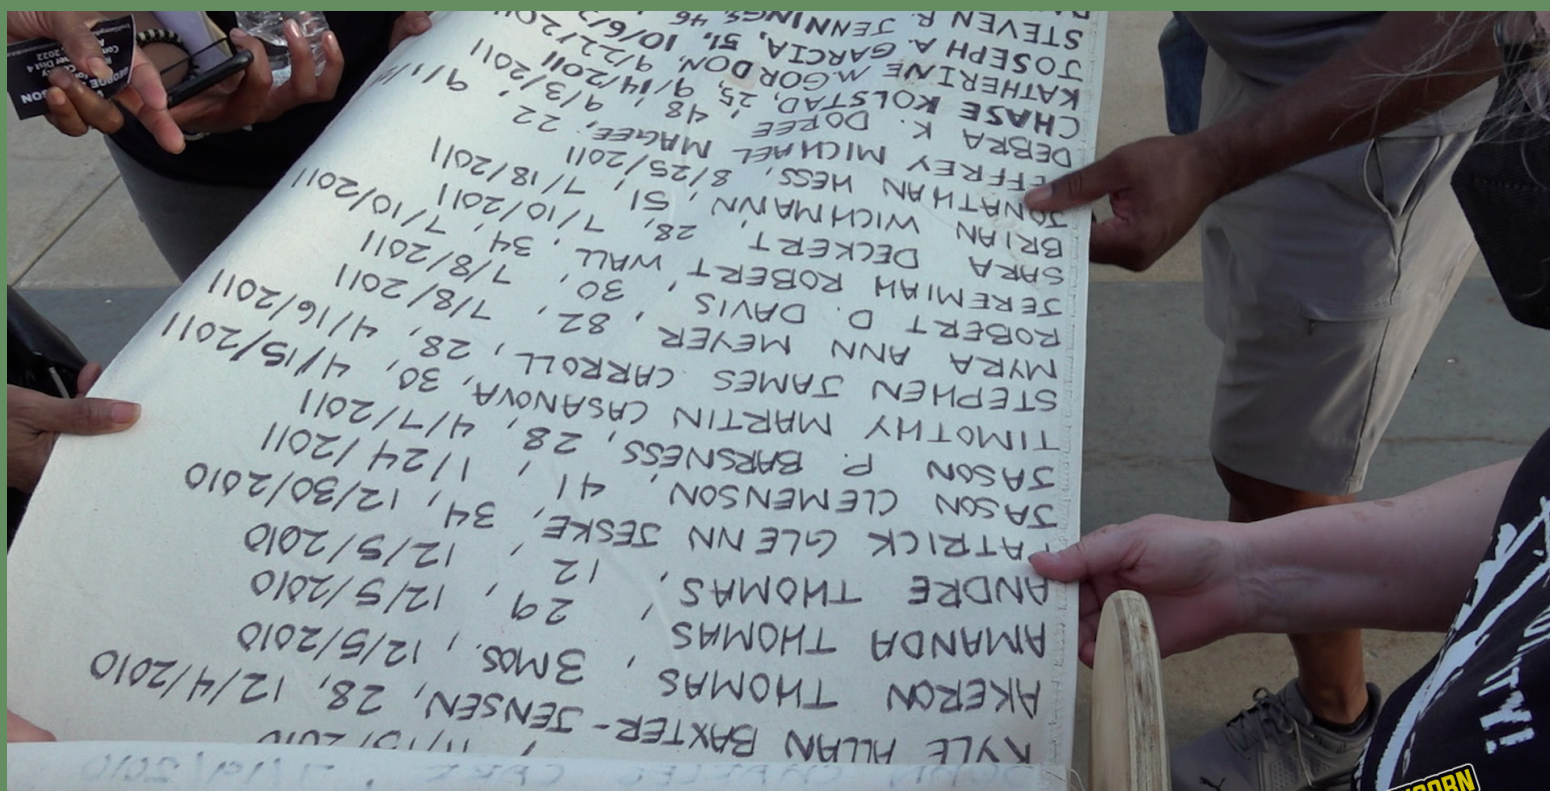 11/15/2010
KYLE ALLAN BAXTER-JENSEN, 28, 12/4/2010
AKERON THOMAS, 3MOS., 12/5/2010
AMANDA THOMAS, 29, 12/5/2010
ANDRE THOMAS, 12, 12/5/2010
ATRICK GLENN JESKE, 34, 12/30/2010
JASON CLEMENSON, 41, 1/24/2011
JASON P. BARSNESS, 28, 4/7/2011
TIMOTHY MARTIN CASANOVA, 30, 4/15/2011
STEPHEN JAMES CARROLL, 28, 4/16/2011
MYRA ANN MEYER, 82, 7/8/2011
ROBERT D. DAVIS, 30, 7/8/2011
JEREMIAH ROBERT WALL, 34, 7/10/2011
SARA DECKERT, 28, 7/10/2011
BRIAN WICHMANN, 51, 7/18/2011
JONATHAN HESS, 8/25/2011
EFFREY MICHAEL MAGEE, 22,
DEBRA K. DOREE, 48, 9/3/2011
CHASE KOLSTAD, 25, 9/14/2011
KATHERINE M. GORDON, 9/22/2011
JOSEPH A. GARCIA, 51, 10/6/2
STEVEN R. JENNINGS, 46